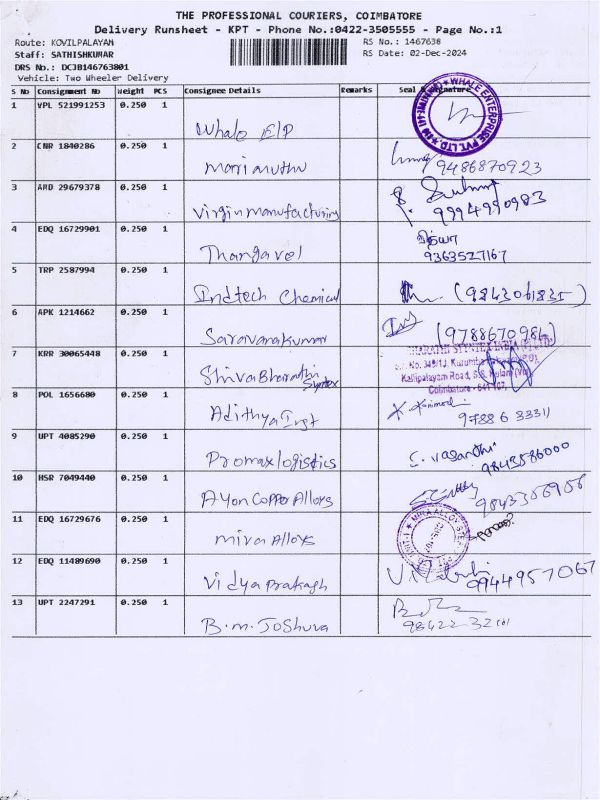 THE PROFESSIONAL COURIERS, COIMBATORE
Delivery Runsheet - KPT - Phone No.:0422-3505555 - Page No.:1
Route: KOVILPALAYAM
RS No.: 1467638
Staff: SATHISHKUMAR
RS Date: 02-Dec-2024
DRS No.: DCJB146763801
Vehicle: Two Wheeler Delivery
S No Consignment No Weight PCS Consignee Details Remarks Seal & Signature
1 VPL 521991253 0.250 1 Whale E/P
WHALE ENTERPRISE PVT. LTD.
2 CNR 1840286 0.250 1 Marimuthu 9486870923
3 AMD 29679378 0.250 1 Virgin manufacturing 9994990983
4 EDQ 16729901 0.250 1 Thangavel
9363527167
5 TRP 2587994 0.250 1 Indtech Chemical (9843061835)
6 APK 1214662 0.250 1 Saravanakumar (9788670984)
7 KRR 30065448 0.250 1 Shiva Bharathi Syntex
BHARATHI SYNTEX INDIA (P) LTD
Kallipalayam Road, S.S. Kulam (Via)
Coimbatore - 641 107.
8 POL 1656680 0.250 1 Adithya Inst 97886 33311
9 UPT 4085290 0.250 1 Promax logistics S. Vasanthi
9843586000
10 HSR 7049440 0.250 1 Ayon Copper Alloys
11 EDQ 16729676 0.250 1 mira Alloys
MIRA ALLOY STEEL
12 EDQ 11489690 0.250 1 Vidya Prakash 9944957067
13 UPT 2247291 0.250 1 B.M. Joshuva